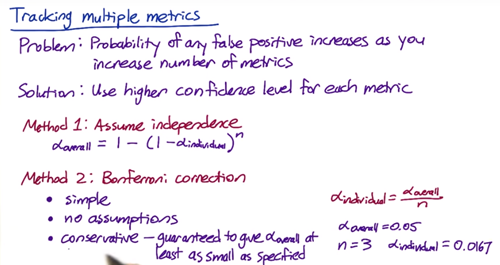 Tracking multiple metrics
Problem: Probability of any false positive increases as you
increase number of metrics
Solution: Use higher confidence level for each metric
Method 1: Assume independence
αoverall = 1 - (1-αindividual)ⁿ
Method 2: Bonferroni correction
• simple
• no assumptions
• conservative - guaranteed to give αoverall at
least as small as specified
αindividual = αoverall/n
αoverall = 0.05
n = 3 αindividual = 0.0167